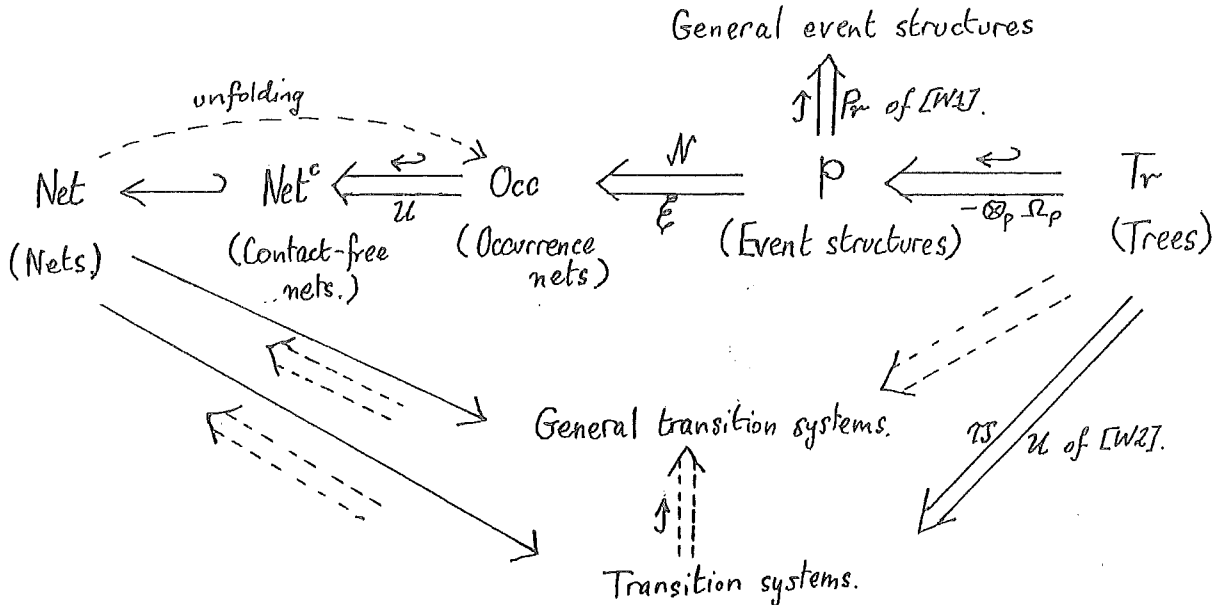 General event structures
unfolding
Pr of [W1].
N
Net Netᶜ Occ P Tr
U
ξ
-⊗ₚ Ωₚ
(Nets) (Contact-free nets.) (Occurrence nets) (Event structures) (Trees)
General transition systems.
U of [W2].
Transition systems.